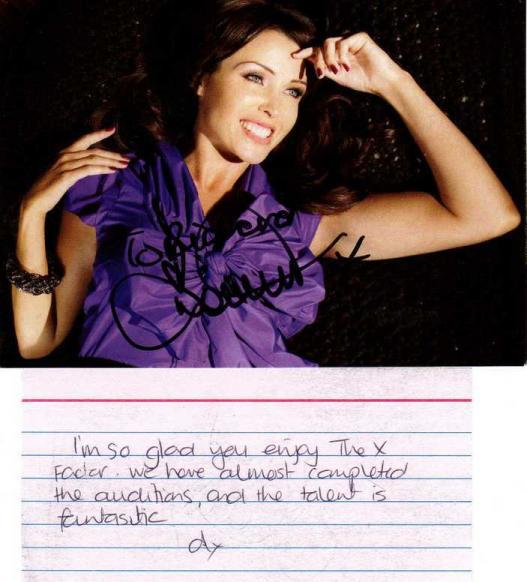 To Richard
Dannii x
I'm so glad you enjoy The X
Factor. we have almost completed
the auditions, and the talent is
fantasitic
dx